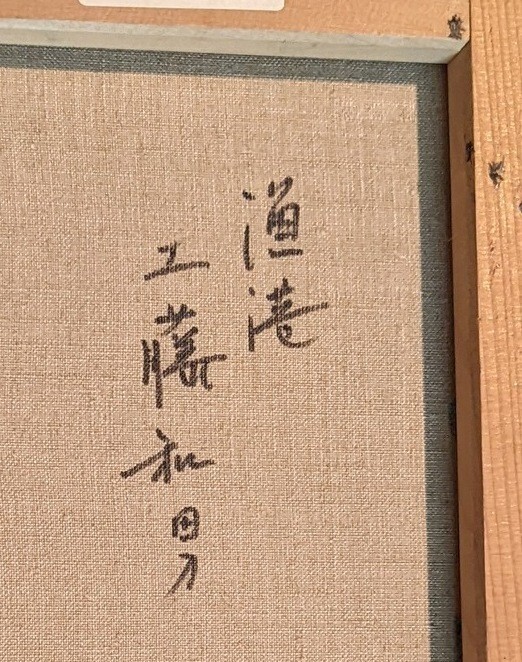 漁港
工藤和男